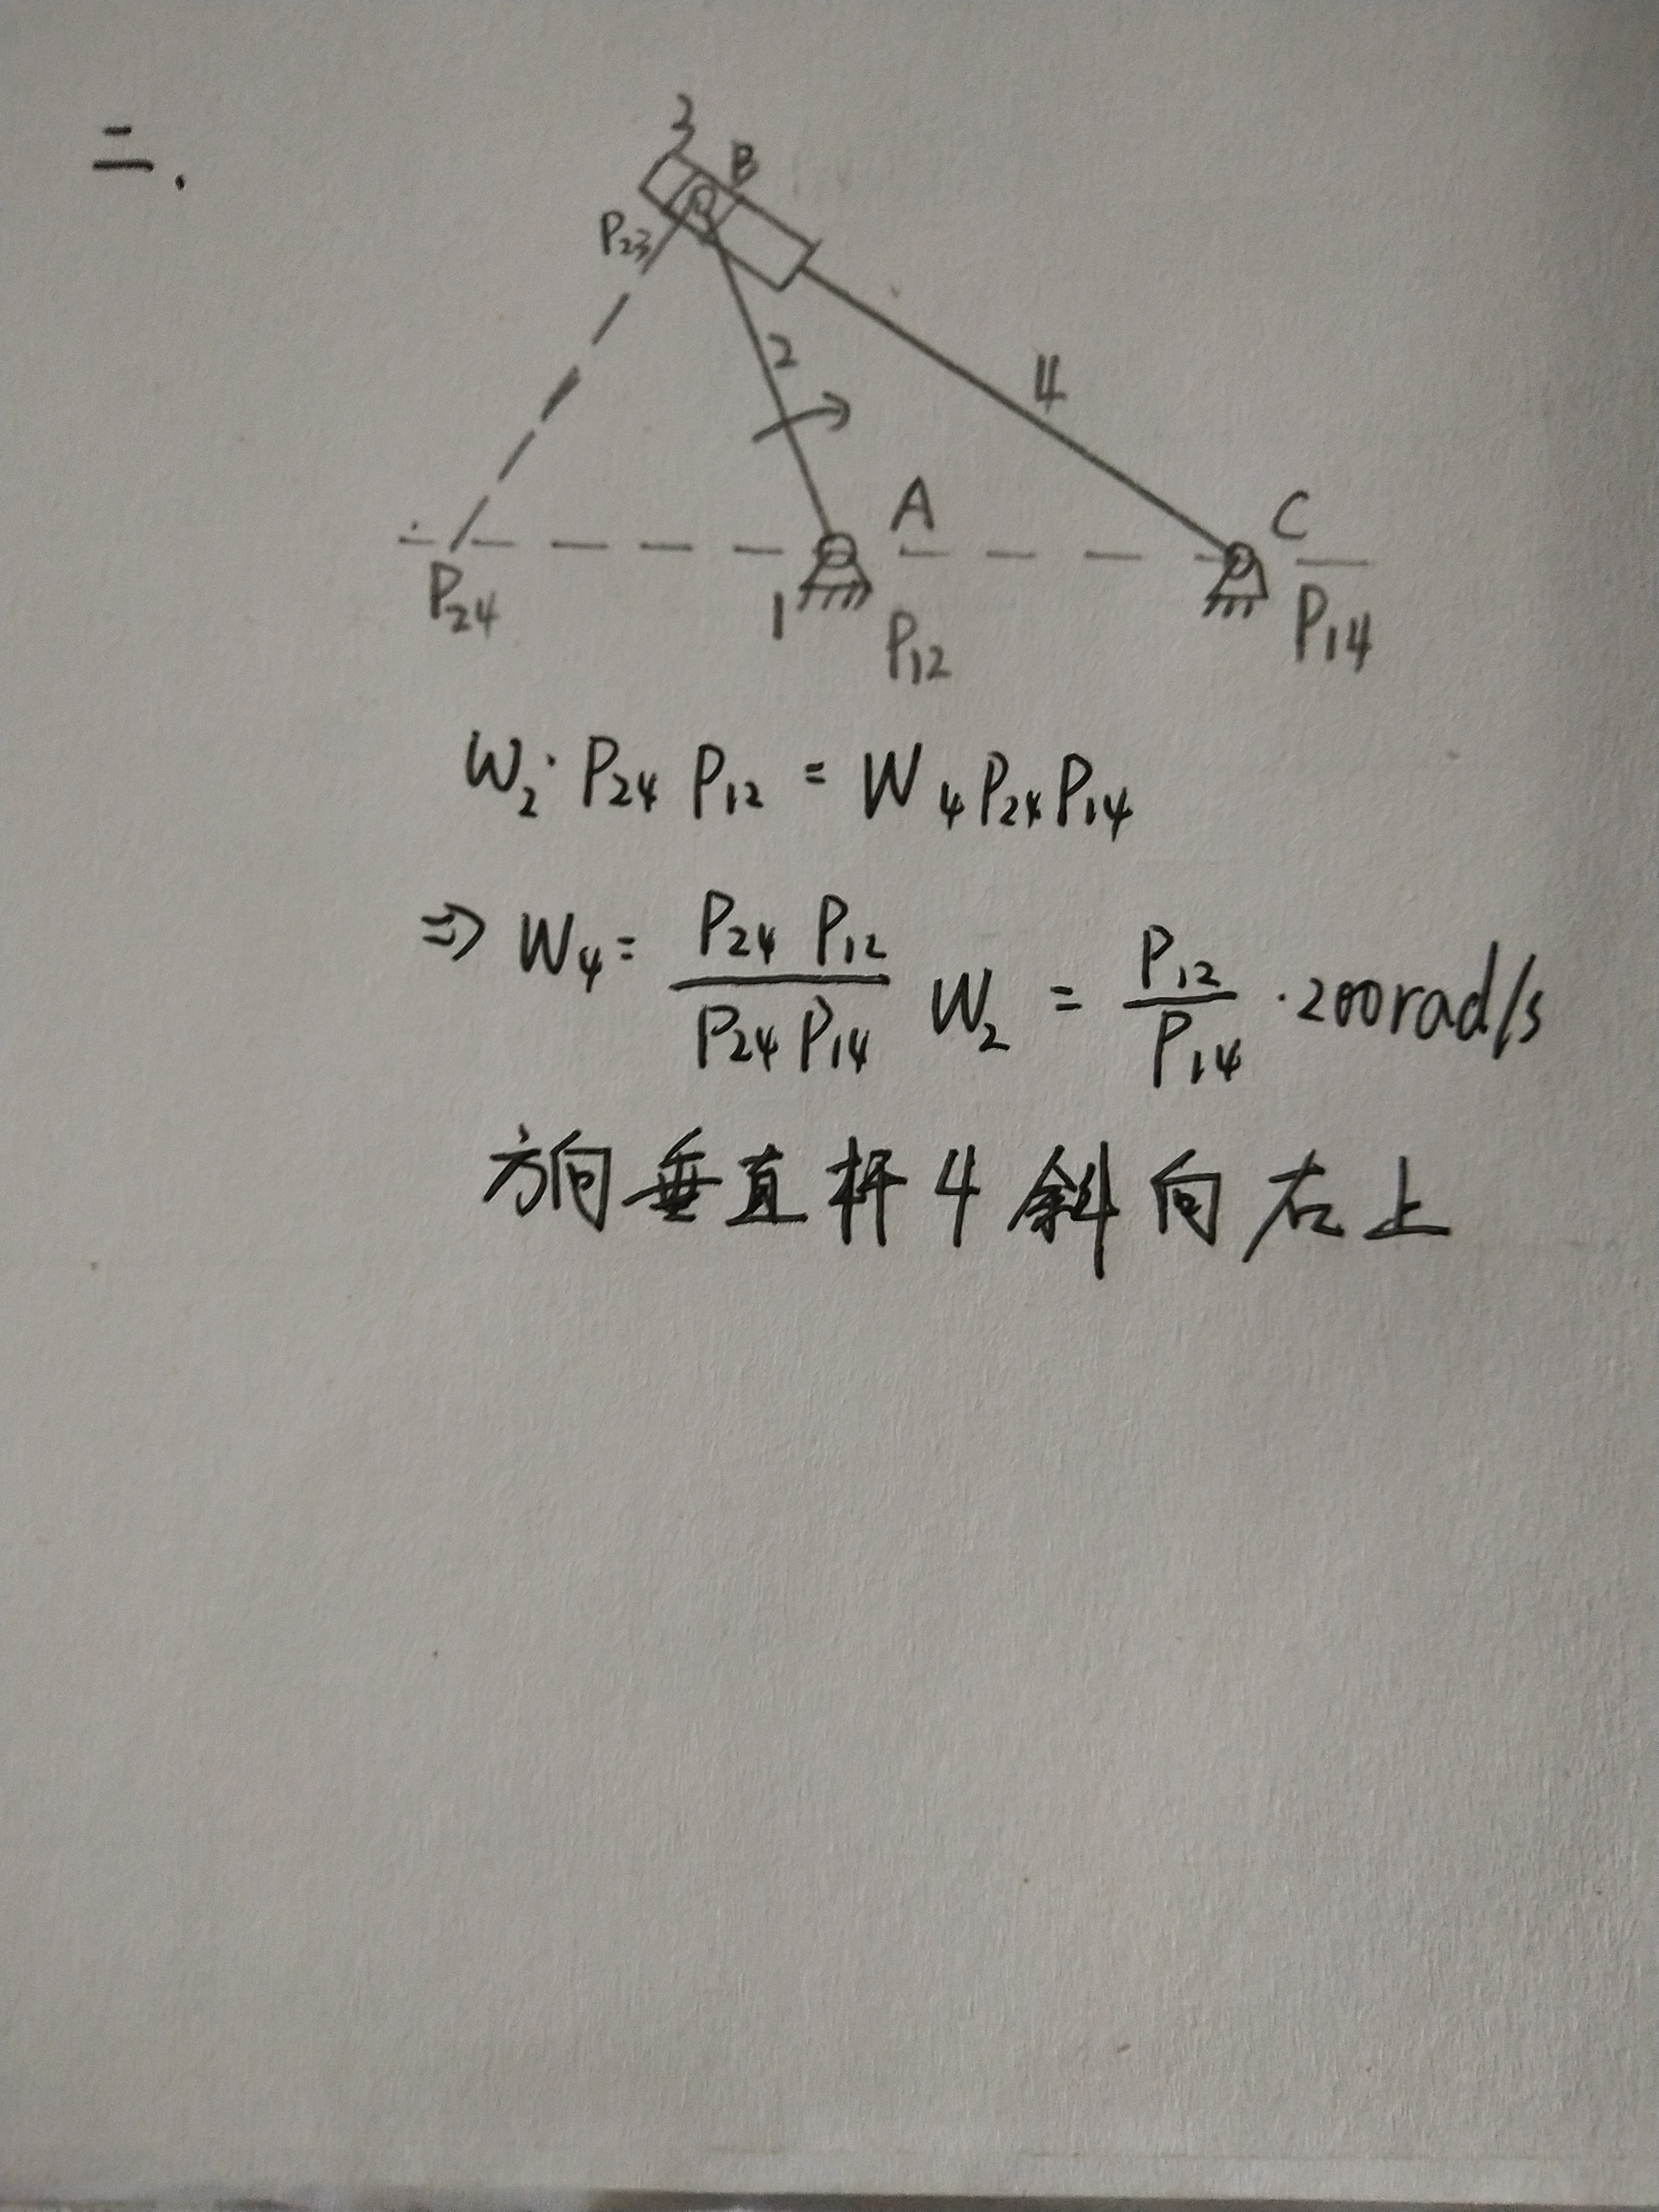 二.
3
B
P₂₃
2
4
A
C
P₂₄
1
P₁₂
P₁₄
W₂·P₂₄P₁₂=W₄P₂₄P₁₄
⇒W₄=P₂₄P₁₂/P₂₄P₁₄ W₂=P₁₂/P₁₄·200rad/s
方向垂直杆4斜向右上